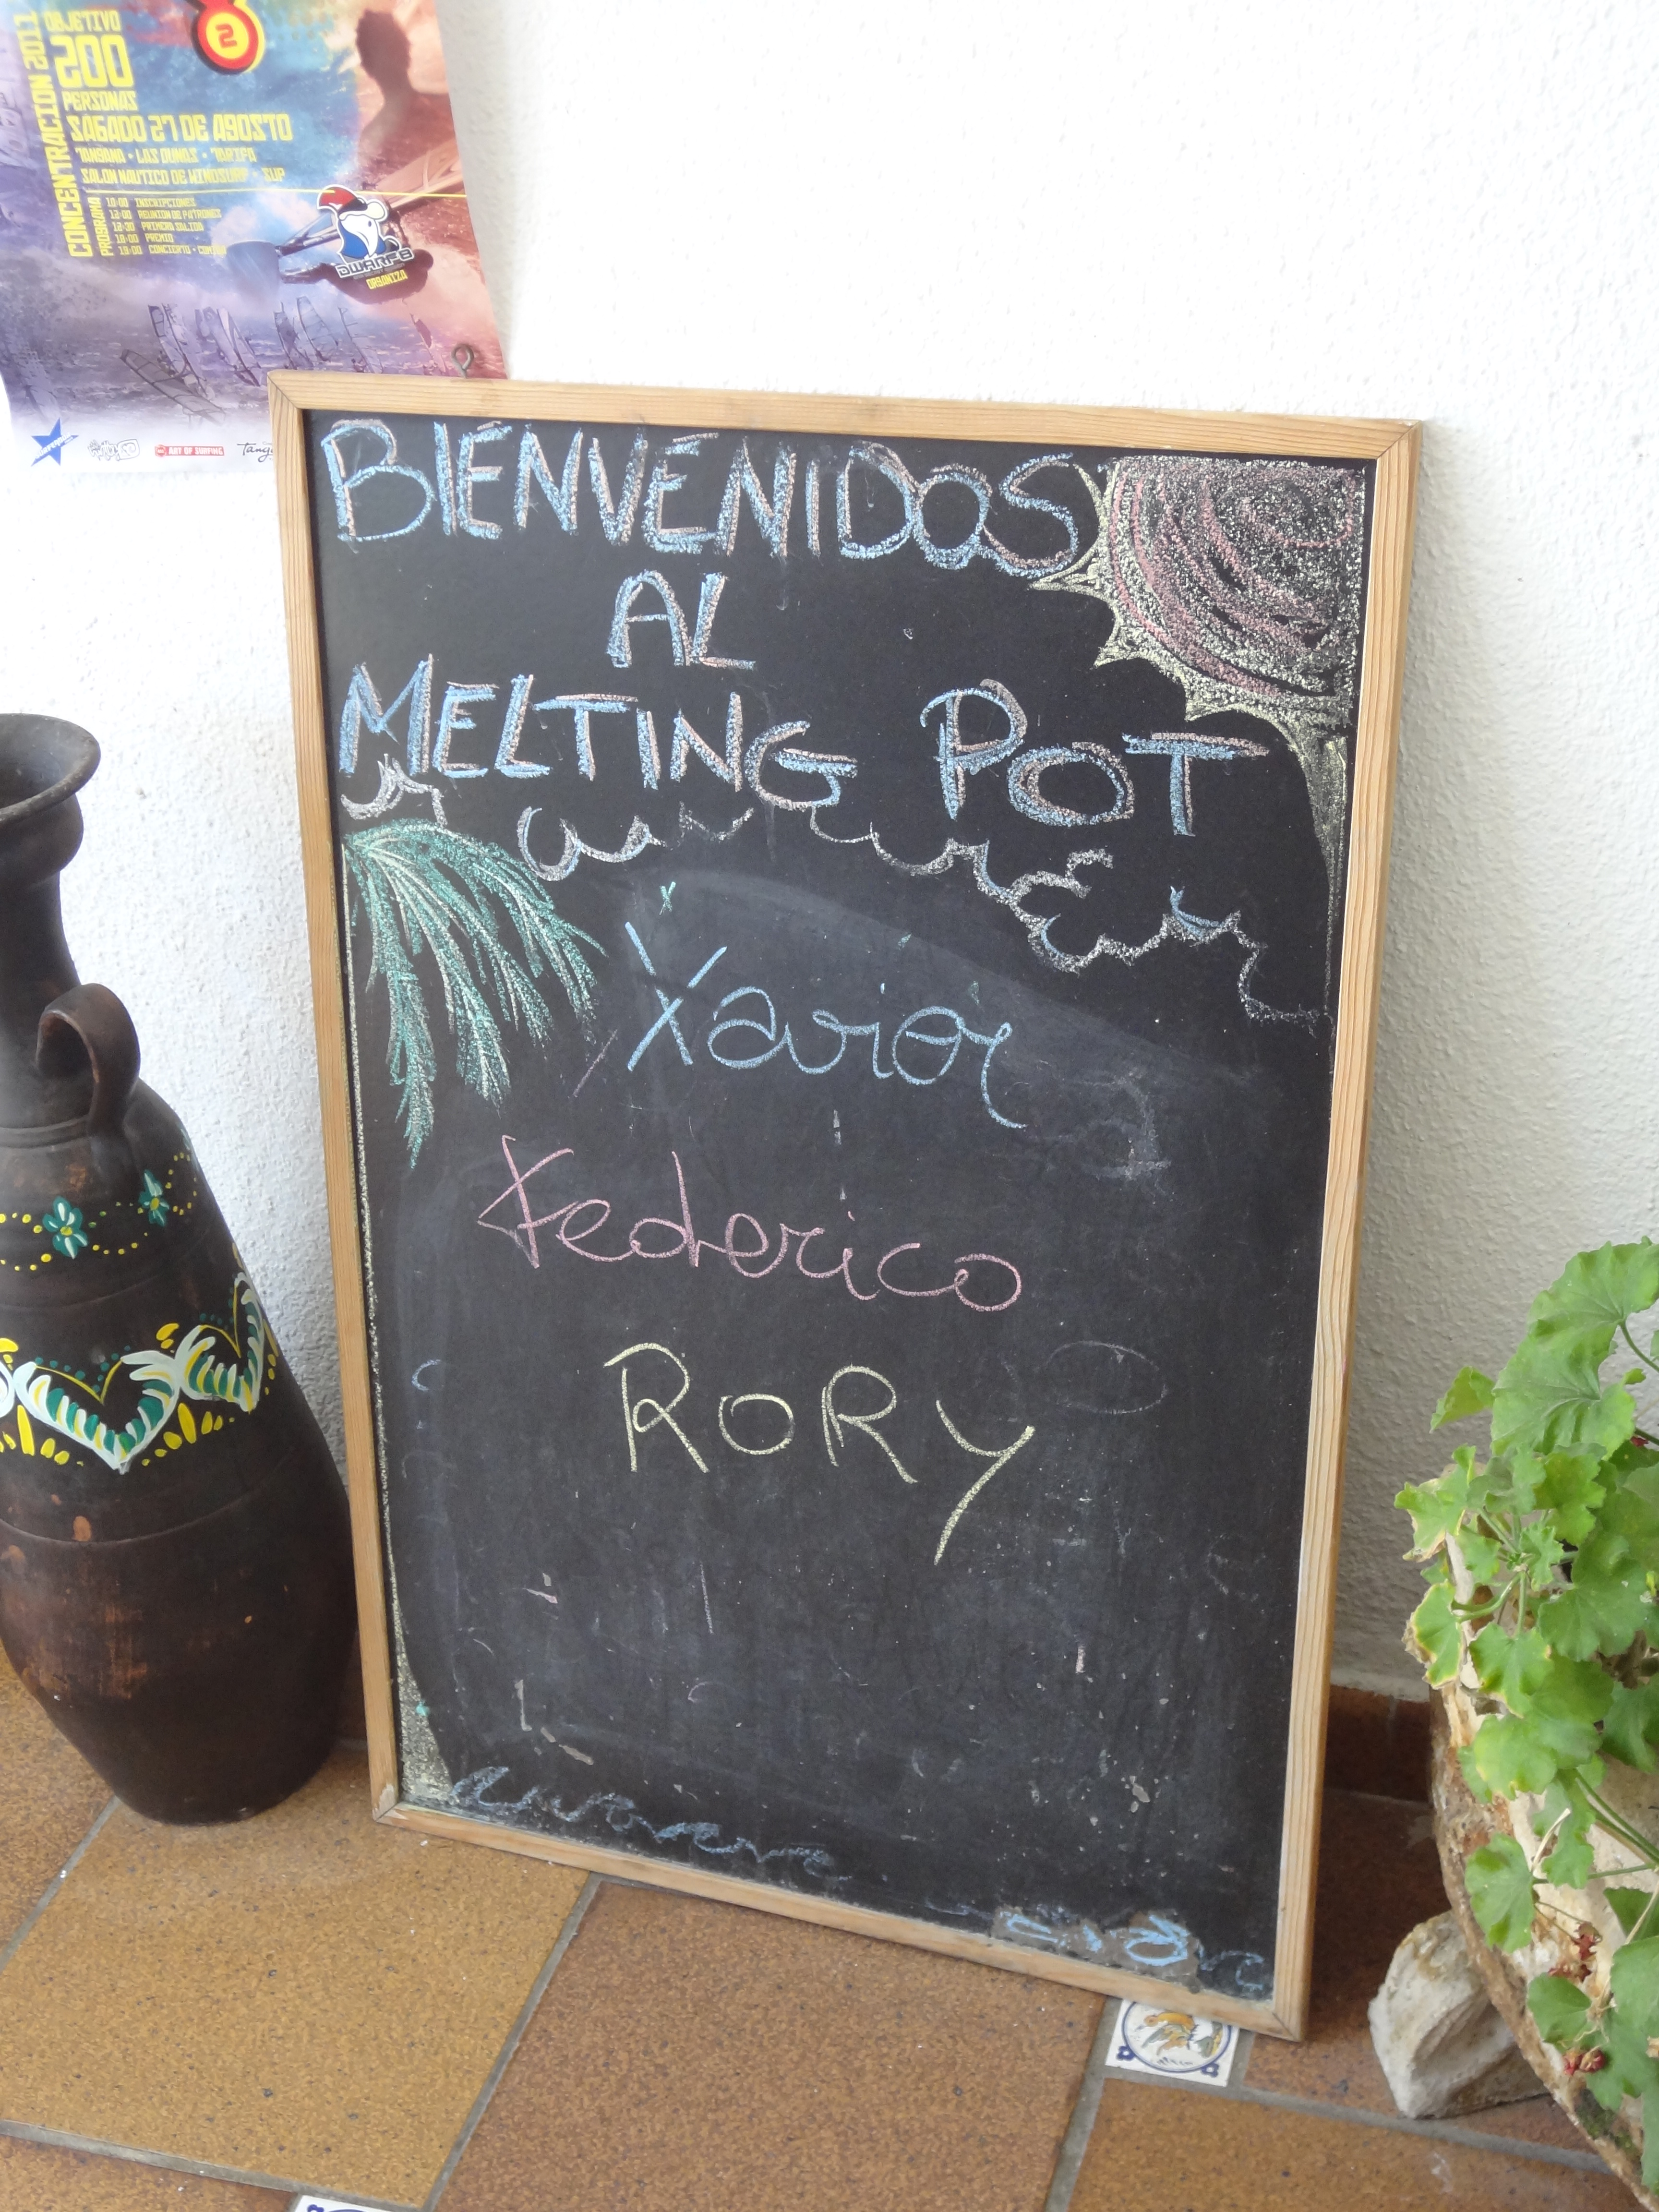 CONCENTRACION 2011
OBJETIVO
200
PERSONAS
SABADO 27 DE AGOSTO
TANGANA · LAS DUNAS · TARIFA
SALON NAUTICO DE WINDSURF · SUP
PROGRAMA
10:00 INSCRIPCIONES
12:00 REUNION DE PATRONES
12:30 PRIMERA SALIDA
18:00 PREMIO
19:00 CONCIERTO · COMIDA
2
DWARF8
ORGANIZA
ART OF SURFING
BIENVENIDOS
AL
MELTING POT
Xavior
Federico
RORY